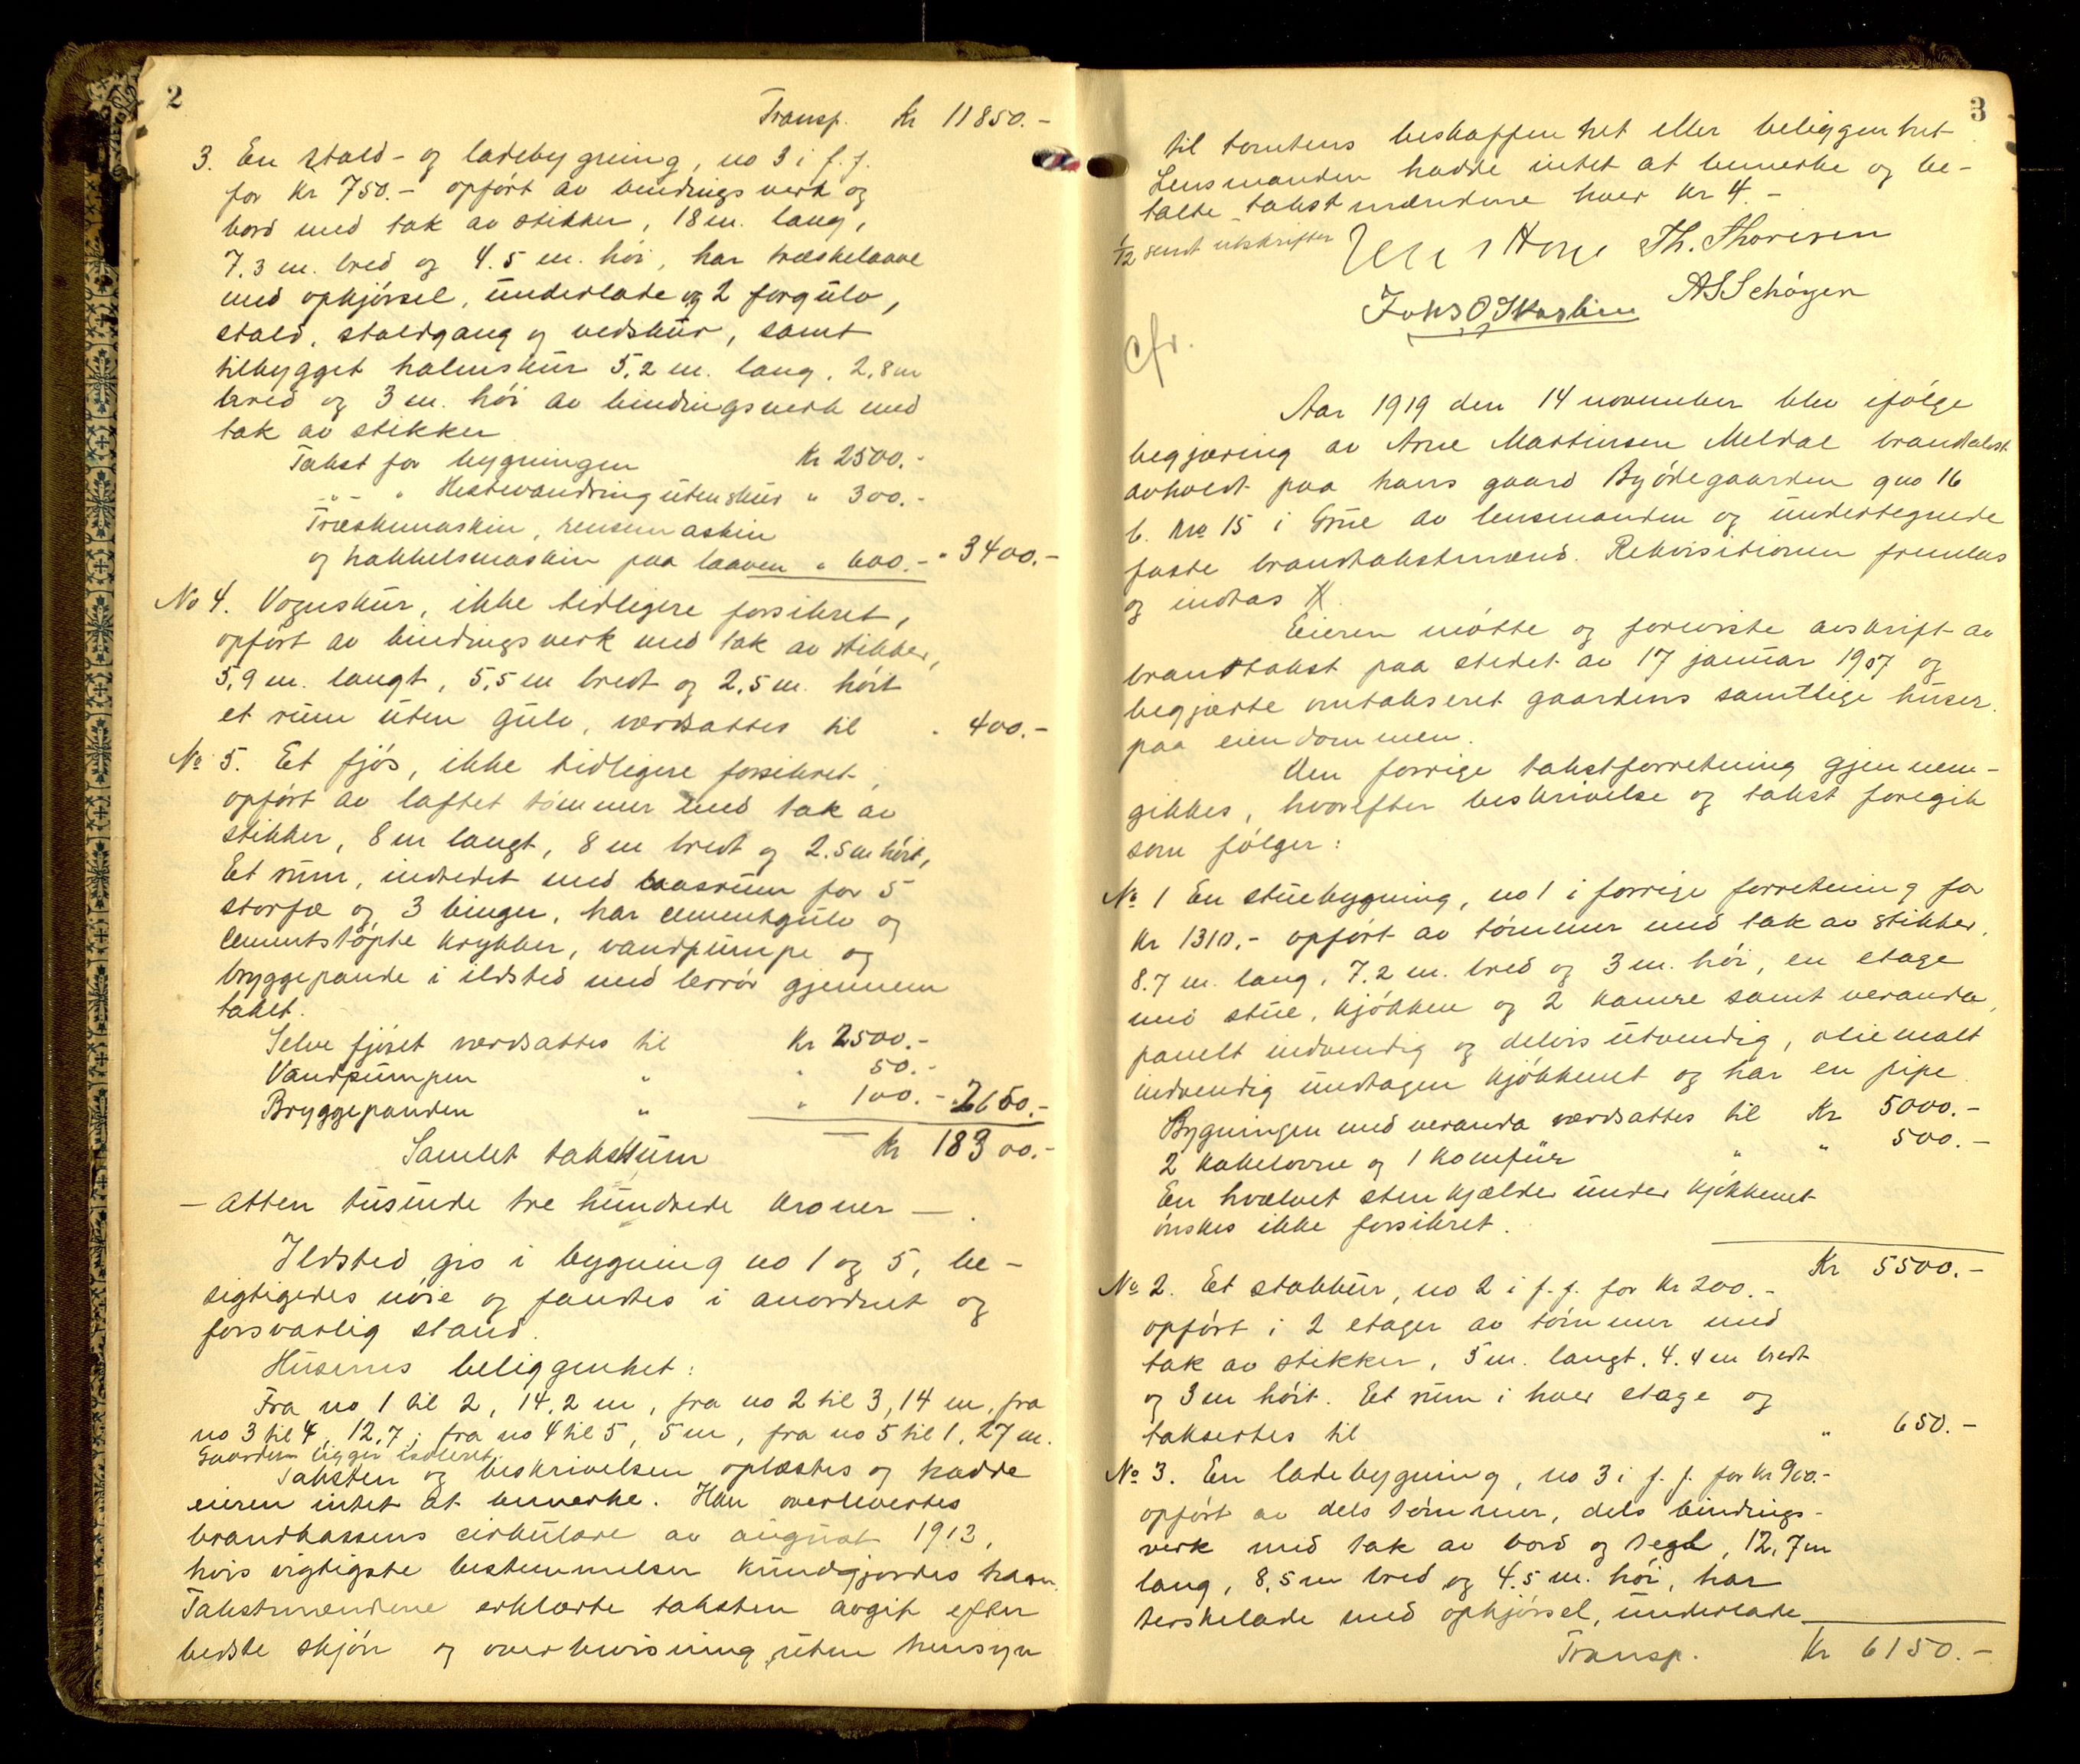 2
Transp. Kr 11850.-
3. En stald- og ladebygning, no 3 i f.f.
for Kr 750.- opført av bindingsverk og
bord med tak av stikker, 18 m. lang,
7.3 m. bred og 4.5 m. høi, har træskelaave
med opkjørsel, underlade og 2 forgulv,
stald, staldgang og vedskur, samt
tilbygget halmskur 5.2 m. lang, 2.8 m
bred og 3 m. høi av bindingsverk med
tak av stikker
Takst for bygningen Kr 2500.-
-"- " Hestevandring uten skur " 300.-
Træskemaskin, rensemaskin
og hakkelsmaskin paa laaven " 600.- " 3400.-
No 4. Vognskur, ikke tidligere forsikret,
opført av bindingsverk med tak av stikker,
5,9 m. langt, 5,5 m bredt og 2,5 m. høit
et rum uten gulv, værdsattes til " 400.-
No 5. Et fjøs, ikke tidligere forsikret,
opført av laftet tømmer med tak av
stikker, 8 m langt, 8 m bredt og 2.5 m høit,
Et rum, indredet med baasrum for 5
storfæ og 3 binger, har cementgulv og
cementstøpte krybber, vandpumpe og
bryggepande i ildsted med lerrør gjennem
taket.
Selve fjøset værdsattes til Kr 2500.-
Vandpumpen " " 50.-
Bryggepanden " " 100.- " 2650.-
Samlet takstsum Kr 18300.-
- Atten tusinde tre hundrede kroner -.
Ildsted gis i bygning no 1 og 5, be-
sigtigedes nøie og fandtes i anordnet og
forsvarlig stand.
Husenes beliggenhet:
Fra no 1 til 2, 14,2 m, fra no 2 til 3, 14 m, fra
no 3 til 4, 12,7, fra no 4 til 5, 5 m, fra no 5 til 1, 27 m.
Gaarden ligger isoleret.
Taksten og beskrivelsen oplæstes og hadde
eieren intet at bemerke. Han overlevertes
brandkassens cirkulære av august 1913,
hvis vigtigste bestemmelser kundgjordes ham.
Takstmændene erklærte taksten avgit efter
bedste skjøn og overbevisning uten hensyn
3
til tomtens beskaffenhet eller beliggenhet
Lensmanden hadde intet at bemerke og be-
talte takstmændene hver Kr 4.-
1/12 sendt utskrifter
Th. Thoresen
A S Schøyen
Cfr.
Aar 1919 den 14 november blev ifølge
begjæring av Arne Martinsen Meldal brandtakst
avholdt paa hans gaard Byødegaarden gno 16
b. No 15 i Grue av lensmanden og undertegnede
faste brandtakstmænd. Rekvisitionen fremlas
og indtas
Eieren møtte og foreviste avskrift av
brandtakst paa stedet av 17 januar 1907 og
begjærte omtakseret gaardens samtlige huser
paa eiendommen.
Den forrige takstforretning gjennem-
gikkes, hvorefter beskrivelse og takst foregik
som følger:
No 1 En stuebygning, no 1 i forrige forretning for
Kr 1310.- opført av tømmer med tak av stikker,
8.7 m. lang, 7.2 m. bred og 3 m. høi, en etage
med stue, kjøkken og 2 kamre samt veranda,
panelt indvendig og delvis utvendig, oliemalt
indvendig undtagen kjøkkenet og har en pipe
Bygningen med veranda værdsattes til Kr 5000.-
2 kakelovne og 1 komfür " " 500.-
En hvælvet stenkjælder under kjøkkenet
ønskes ikke forsikret.
Kr 5500.-
No 2. Et stabbur, no 2 i f.f. for Kr 200.-
opført i 2 etager av tømmer med
tak av stikker, 5 m. langt, 4.4 m bredt
og 3 m høit. Et rum i hver etage og
taksertes til " 650.-
No 3. En ladebygning, no 3 i f.f. for Kr 900.-
opført av dels tømmer, dels bindings-
verk med tak av bord og tegl, 12,7 m
lang, 8,5 m bred og 4.5 m. høi, har
terskelade med opkjørsel, underlade
Transp. Kr 6150.-